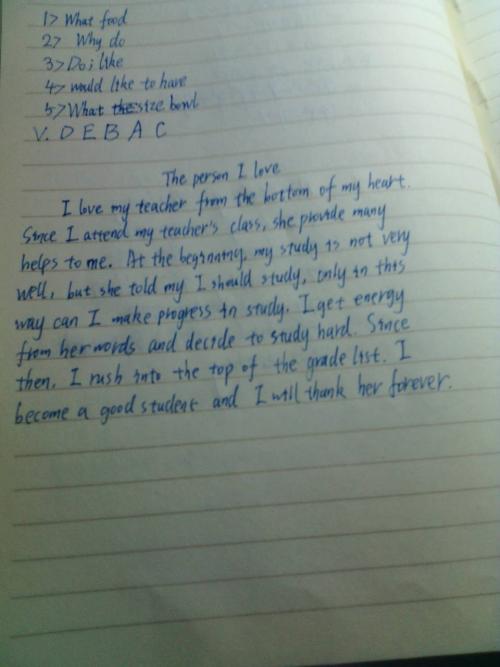 1> What food
2> Why do
3> Do; like
4> would like to have
5> What size bowl
V. D E B A C
The person I love
I love my teacher from the bottom of my heart.
Since I attend my teacher's class, she provide many
helps to me. At the beginning, my study is not very
well, but she told my I should study, only in this
way can I make progress in study. I get energy
from her words and decide to study hard. Since
then, I rush into the top of the grade list. I
become a good student and I will thank her forever.